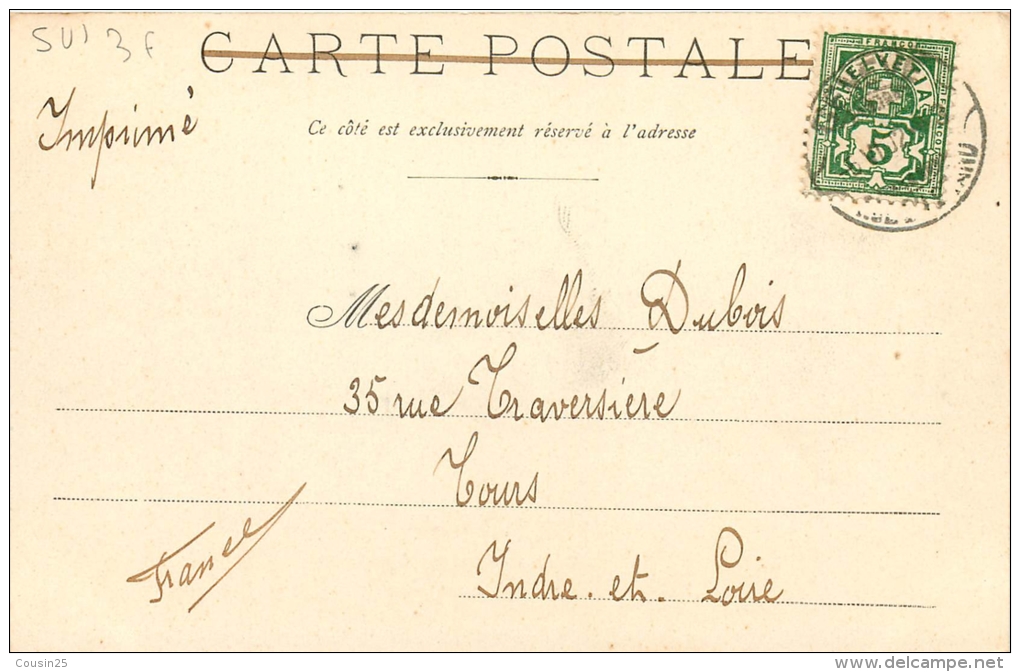 SUI 3F
CARTE POSTALE
Imprimé
Ce côté est exclusivement réservé à l'adresse
FRANCO
HELVETIA
FRANCO
5
Mesdemoiselles Dubois
35 rue Traversière
Tours
France
Indre-et-Loire
Cousin25
www.delcampe.net